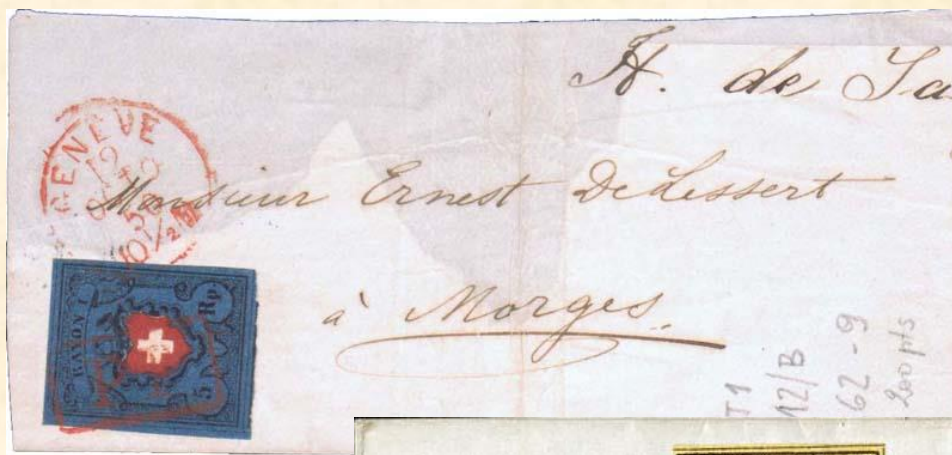 H. de Sa
GENEVE
12
OCTO
50
10 1/2 M
Monsieur Ernest DeLessert
à Morges.
RAYON I
5 Rp
T1
12/B
62-9
200 pts